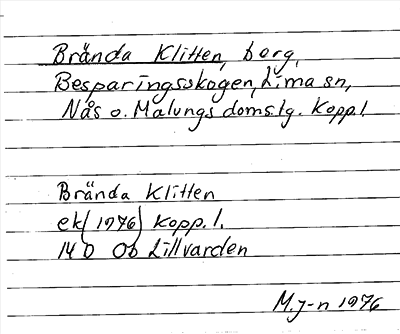 Brända Klitten, berg,
Besparingsskogen, Lima sn,
Nås o. Malungs doms.lg. Kopp.l.
Brända Klitten
ek (1976) Kopp.l.
14 D Ob Lillvarden
M.J-n 1976